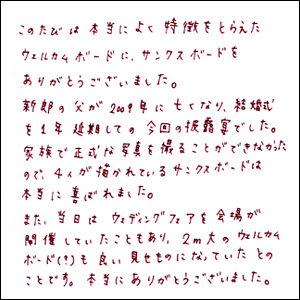 このたびは本当によく特徴をとらえた
ウェルカムボードに、サンクスボードを
ありがとうございました。
新郎の父が2009年に亡くなり、結婚式
を1年延期しての今回の披露宴でした。
家族で正式な写真を撮ることができなかった
ので、4人が描かれているサンクスボードは
本当に喜ばれました。
また、当日はウェディングフェアを会場が
開催していたこともあり、2m大のウェルカム
ボード(?)も良い見せものになっていたとの
ことです。本当にありがとうございました。